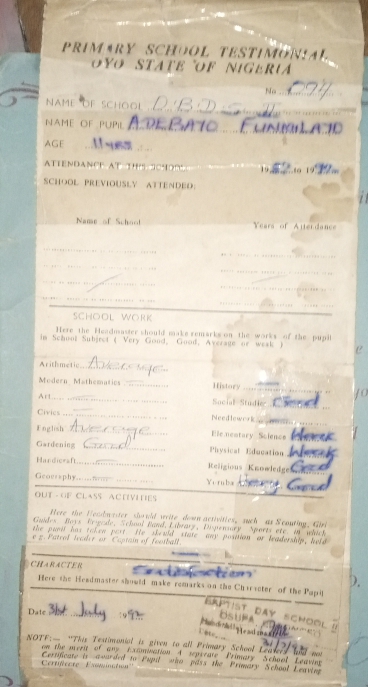 PRIMARY SCHOOL TESTIMONIAL
OYO STATE OF NIGERIA
No 094
NAME OF SCHOOL D.B.D.S. II
NAME OF PUPIL ADEBAYO FUNMILAYO
AGE 11yrs
ATTENDANCE AT THIS SCHOOL 19 to 19
SCHOOL PREVIOUSLY ATTENDED:
Name of School Years of Attendance
SCHOOL WORK
Here the Headmaster should make remarks on the works of the pupil
in School Subject ( Very Good, Good, Average or weak )
Arithmetic Average
Modern Mathematics —
Art —
Civics —
English Average
Gardening Good
Handicraft —
Geography —
History —
Social Studies Good
Needlework —
Elementary Science Weak
Physical Education Weak
Religious Knowledge Good
Yoruba Very Good
OUT-OF CLASS ACTIVITIES
Here the Headmaster should write down activities, such as Scouting, Girl
Guides, Boys Brigade, School Band, Library, Dispensary Sports etc. in which
the pupil has taken part. He should state any position or leadership, held
e.g. Patrol leader or Captain of football.
CHARACTER
Here the Headmaster should make remarks on the Character of the Pupil
Date 31st July 1992
BAPTIST DAY SCHOOL II
OSUPA
Headmaster
31/7/92
NOTE:— "This Testimonial is given to all Primary School Leavers not
on the merit of any Examination A separate Primary School Leaving
Certificate is awarded to Pupil who pass the Primary School Leaving
Certificate Examination"